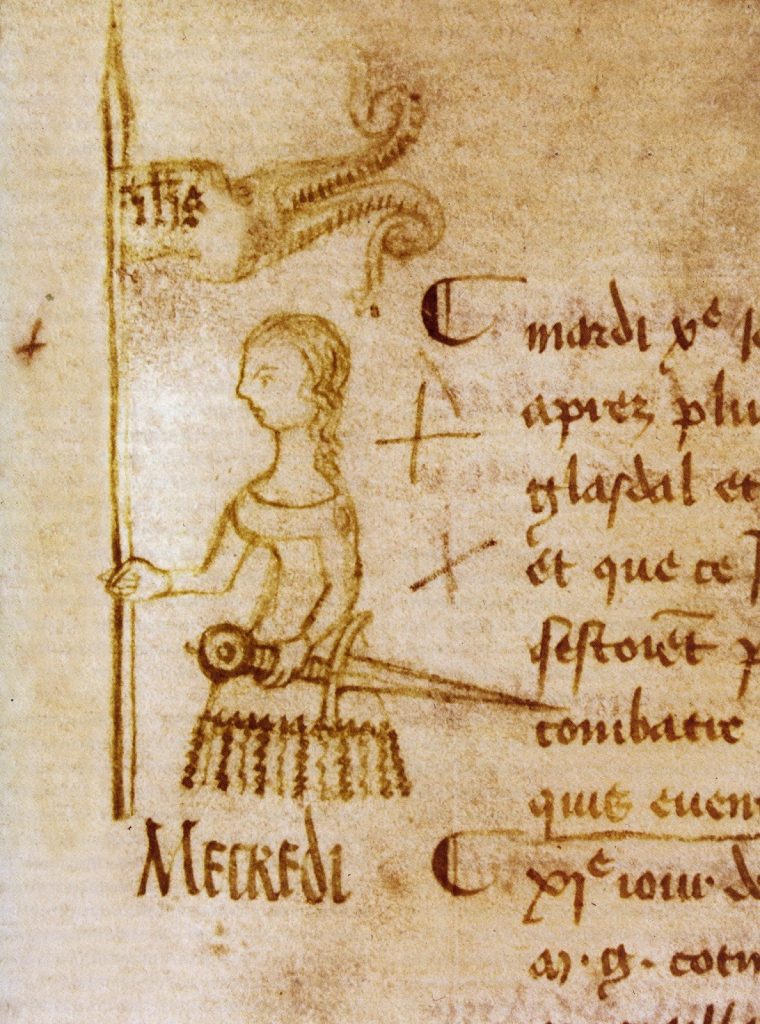 ihs
mardi xe
aprez plu
glasdal et
et que ce
sestoiet p
combatre
quis even
Mecredi
xje iour de
m. g. cotn